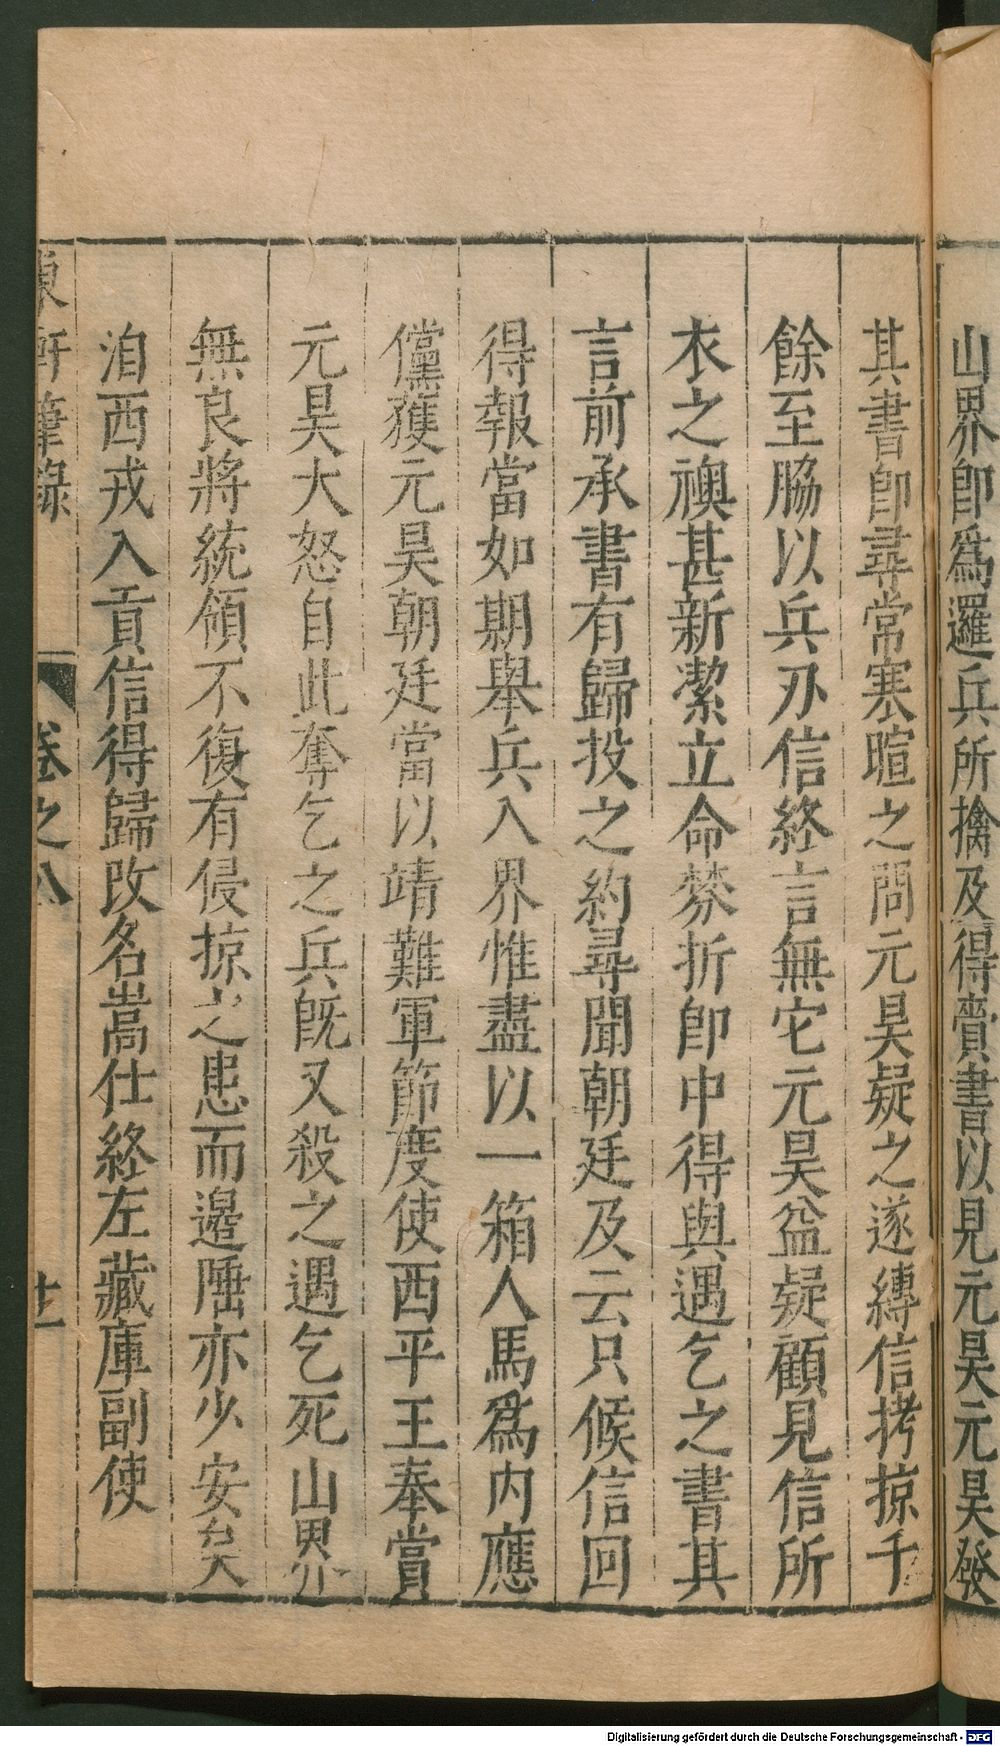 山界卽爲邏兵所擒及得賫書以見元昊元昊發
其書卽尋常寒暄之問元昊疑之遂縳信拷掠千
餘至脇以兵刃信終言無它元昊益疑顧見信所
衣之襖甚新潔立命棼折卽中得與遇乞之書其
言前承書有歸投之約尋聞朝廷及云只候信回
得報當如期舉兵入界惟盡以一箱人馬爲内應
儻獲元昊朝廷當以靖難軍節度使西平王奉賞
元昊大怒自此奪乞之兵旣又殺之遇乞死山界
無良將統領不復有侵掠之患而邉陲亦少安矣
洎西戎入貢信得歸改名嵩仕終左藏庫副使
東軒筆錄 卷之八
Digitalisierung gefördert durch die Deutsche Forschungsgemeinschaft - DFG